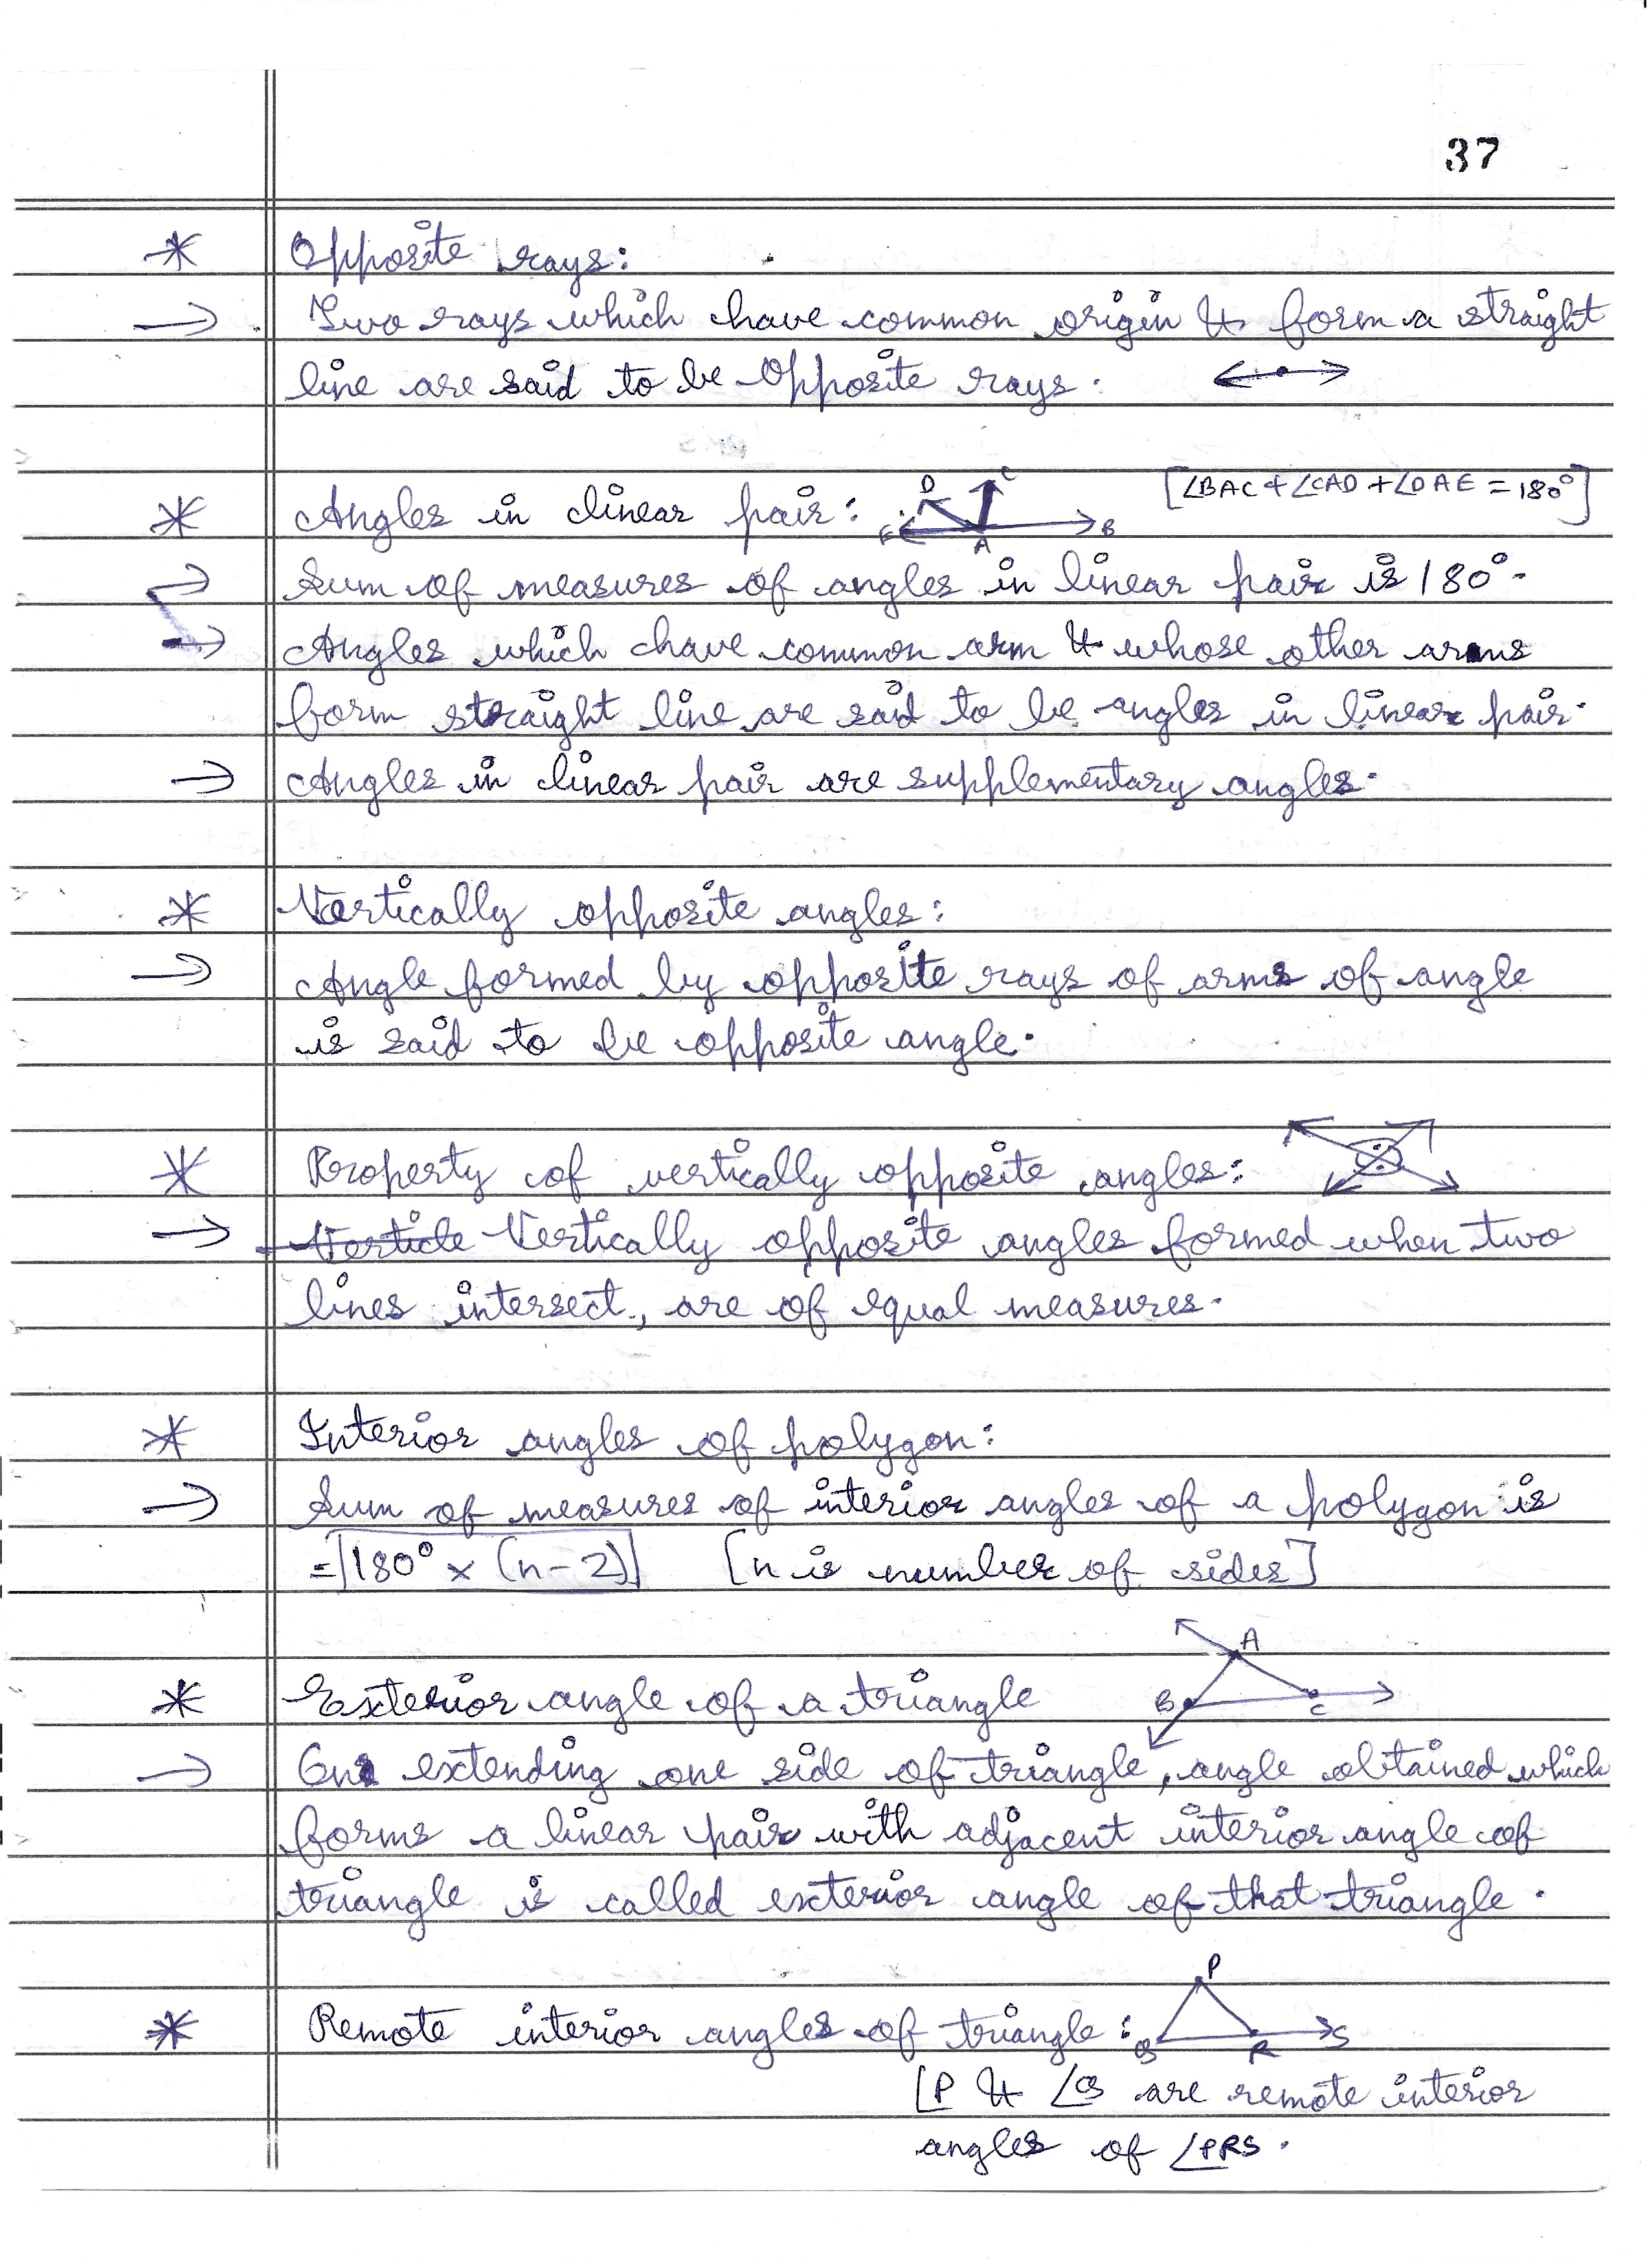 37
* Opposite rays:
→ Two rays which have common origin & form a straight
line are said to be Opposite rays.
* Angles in linear pair: E D C A B [∠BAC + ∠CAD + ∠DAE = 180°]
→ Sum of measures of angles in linear pair is 180°.
→ Angles which have common arm & whose other arms
form straight line are said to be angles in linear pair.
→ Angles in linear pair are supplementary angles.
* Vertically opposite angles:
→ Angle formed by opposite rays of arms of angle
is said to be opposite angle.
* Property of vertically opposite angles:
→ Verticle Vertically opposite angles formed when two
lines intersect, are of equal measures.
* Interior angles of polygon:
→ Sum of measures of interior angles of a polygon is
= 180° × (n-2) [n is number of sides]
* Exterior angle of a triangle A B C
→ On extending one side of triangle, angle obtained which
forms a linear pair with adjacent interior angle of
triangle is called exterior angle of that triangle.
* Remote interior angles of triangle: P Q R S
∠P & ∠Q are remote interior
angles of ∠PRS.